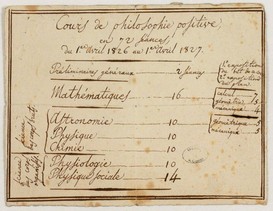 Cours de philosophie positive,
en 72 séances,
Du 1er Avril 1826 au 1er Avril 1827.
Préliminaires généraux 2 séances
Mathématiques 16
calcul 7
géométrie 5
mécanique
Astronomie 10
géométrique 5
mécanique 5
Physique 10
Chimie 10
Physiologie 10
Physique sociale 14